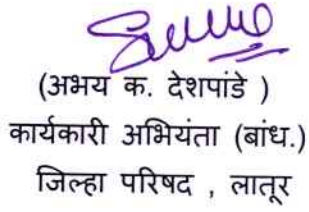 (अभय क. देशपांडे )
कार्यकारी अभियंता (बांध.)
जिल्हा परिषद , लातूर